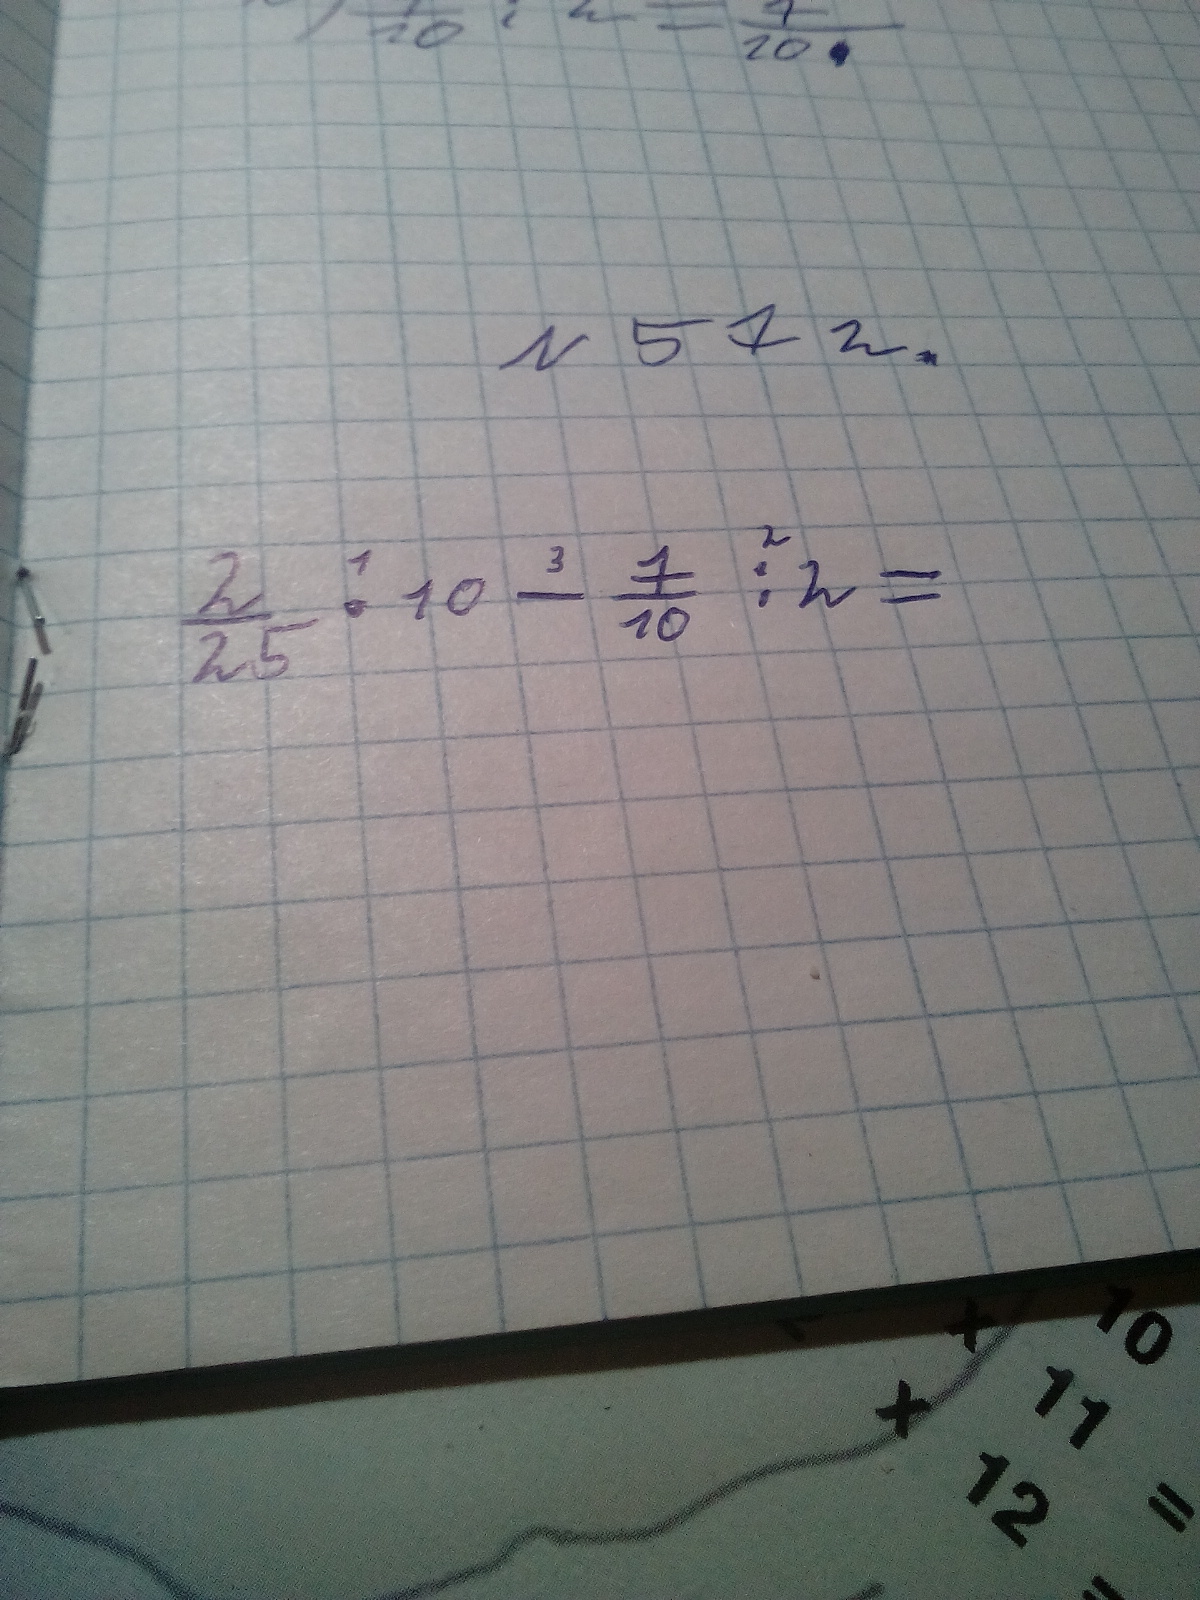 1/10 : 2 = 1/10.
N 572.
2/25 :¹ 10 —³ 7/10 :² 2 =
+ 10
+ 11
12 =
=